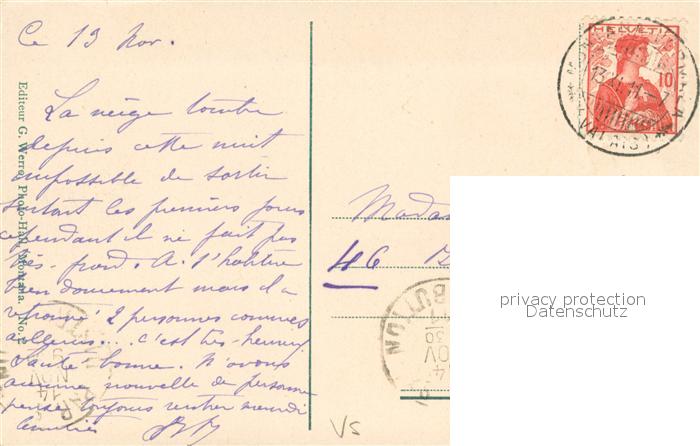 Ce 13 Nov.
La neige tombe
depuis cette nuit
impossible de sortir
surtout les premiers jours
cependant il ne fait pas
très froid. A. l'habitue
bien doucement mais il a
retrouvé 2 personnes connues
ailleurs... c'est très heureux
Santé bonne. N'avons
aucune nouvelle de personne
pense toujours rentrer mardi
Amitiés
Editeur G. Werro, Photo-Hall, Montana. No.
HELVETIA
10
13.XI.11.-7
(VALAIS)
Mada
46
14
NOV
30
VS
privacy protection
Datenschutz